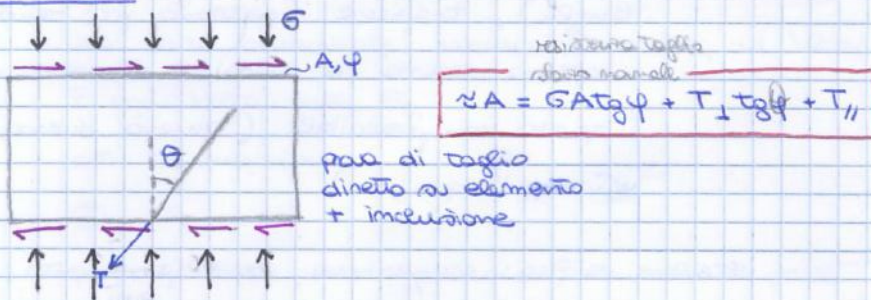 σ
τ A, φ
resistenza taglio
sforzo normale
τA = σA tgφ + T⊥ tgφ + T//
θ
prova di taglio
diretto su elemento
+ inclusione
T